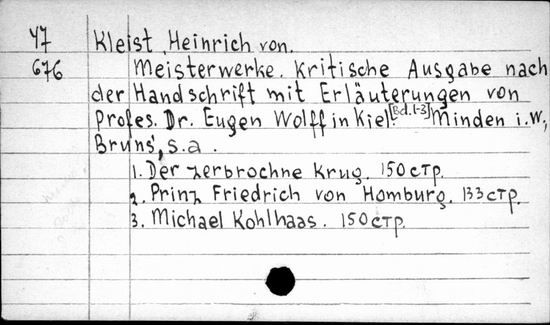 У7 Kleist, Heinrich von.
676 Meisterwerke. Kritische Ausgabe nach
der Handschrift mit Erläuterungen von
Profes. Dr. Eugen Wolff in Kiel. [Bd.1-3] Minden i.W,
Bruns', s.a.
1. Der zerbrochne Krug. 150 стр.
2. Prinz Friedrich von Homburg. 133 стр.
3. Michael Kohlhaas. 150 стр.